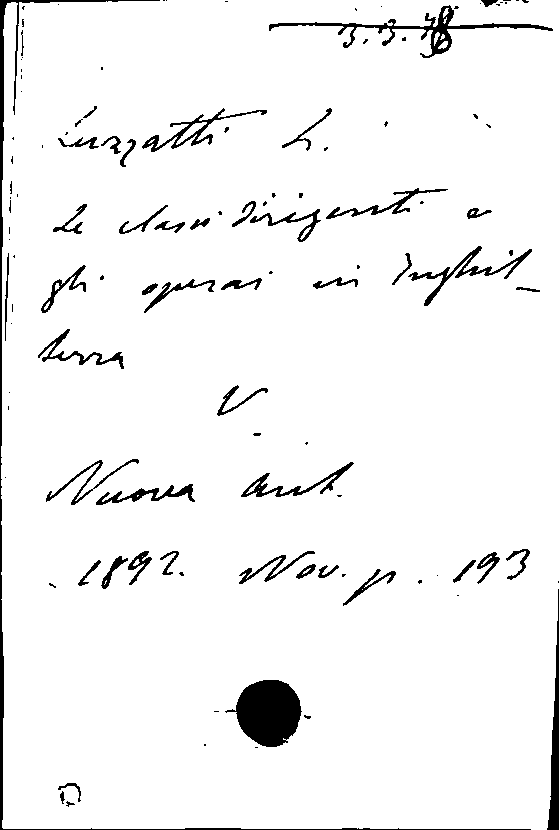 3.3.
Luzzatti L.
Le classi dirigenti e
gli operai in Inghil-
terra
V.
Nuova Ant.
1892. Nov. p. 193